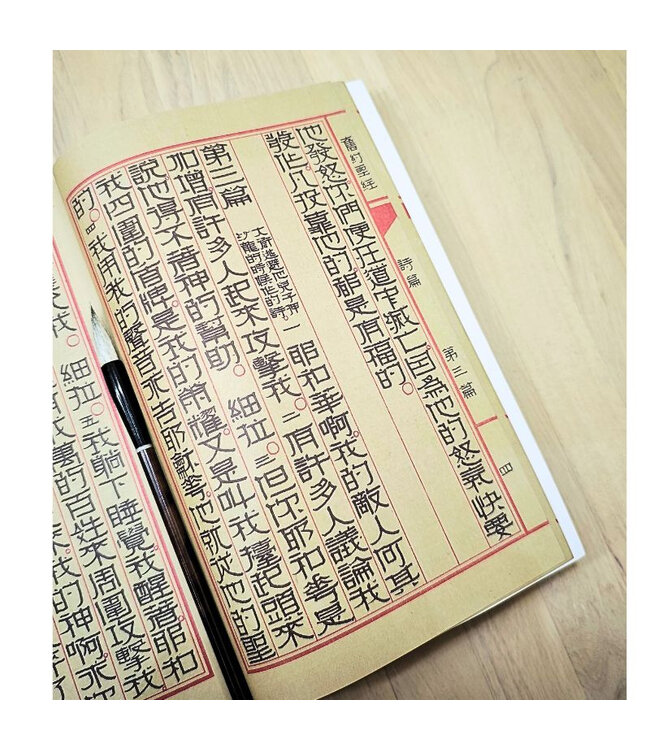 舊約聖經 詩篇 第三篇 四
他發怒你們便在道中滅亡因為他的怒氣快要
發作。凡投靠他的都是有福的。
第三篇
大衛逃避他兒子押
沙龍的時候作的詩
一耶和華啊我的敵人何其
加增有許多人起來攻擊我。二有許多人議論我
說他得不著神的幫助。細拉。三但你耶和華是
我四圍的盾牌是我的榮耀又是叫我擡起頭來
的。四我用我的聲音求告耶和華他就從他的聖
我。細拉。五我躺下睡覺我醒著耶和
的百姓來周圍攻擊我
我的神啊求你